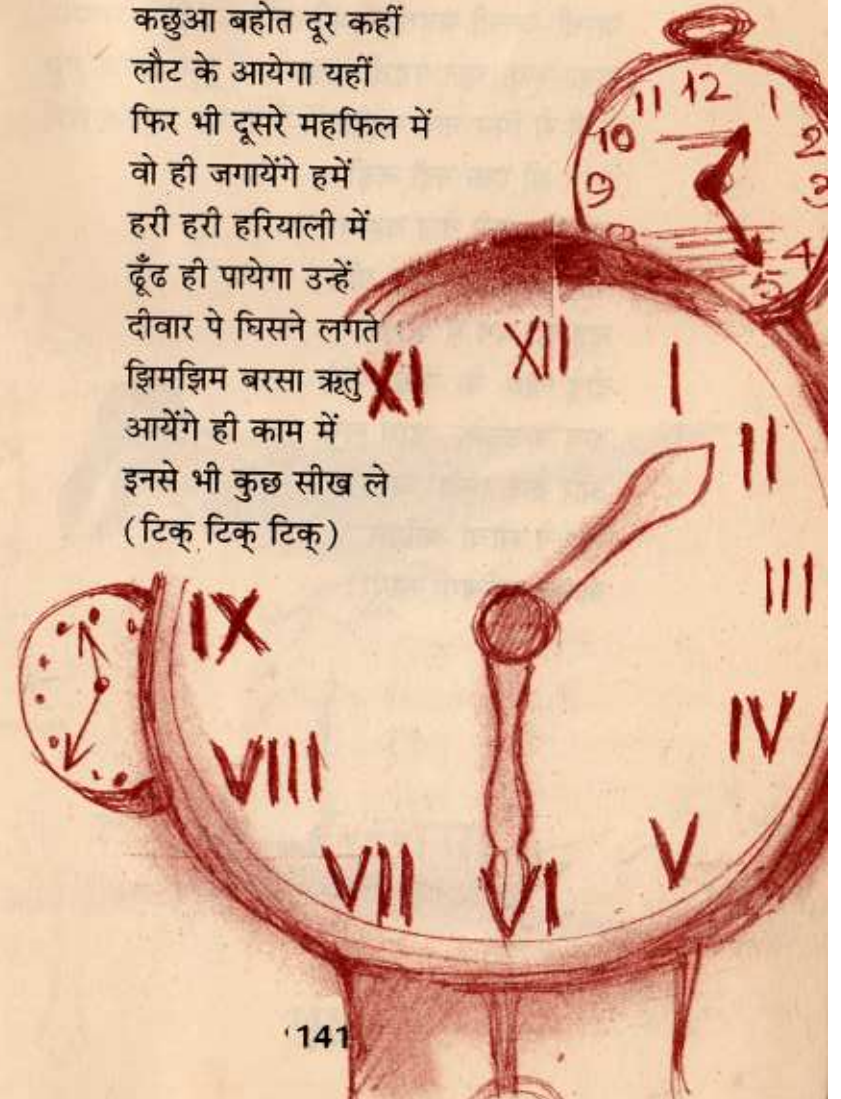 कछुआ बहोत दूर कहीं
लौट के आयेगा यहीं
फिर भी दूसरे महफिल में
वो ही जगायेंगे हमें
हरी हरी हरियाली में
ढूँढ ही पायेगा उन्हें
दीवार पे घिसने लगते
झिमझिम बरसा ऋतु
आयेंगे ही काम में
इनसे भी कुछ सीख ले
(टिक् टिक् टिक्)
12
11 1
10 2
9 3
8 4
5
XII
XI I
II
III
IX
IV
VIII
V
VII VI
141